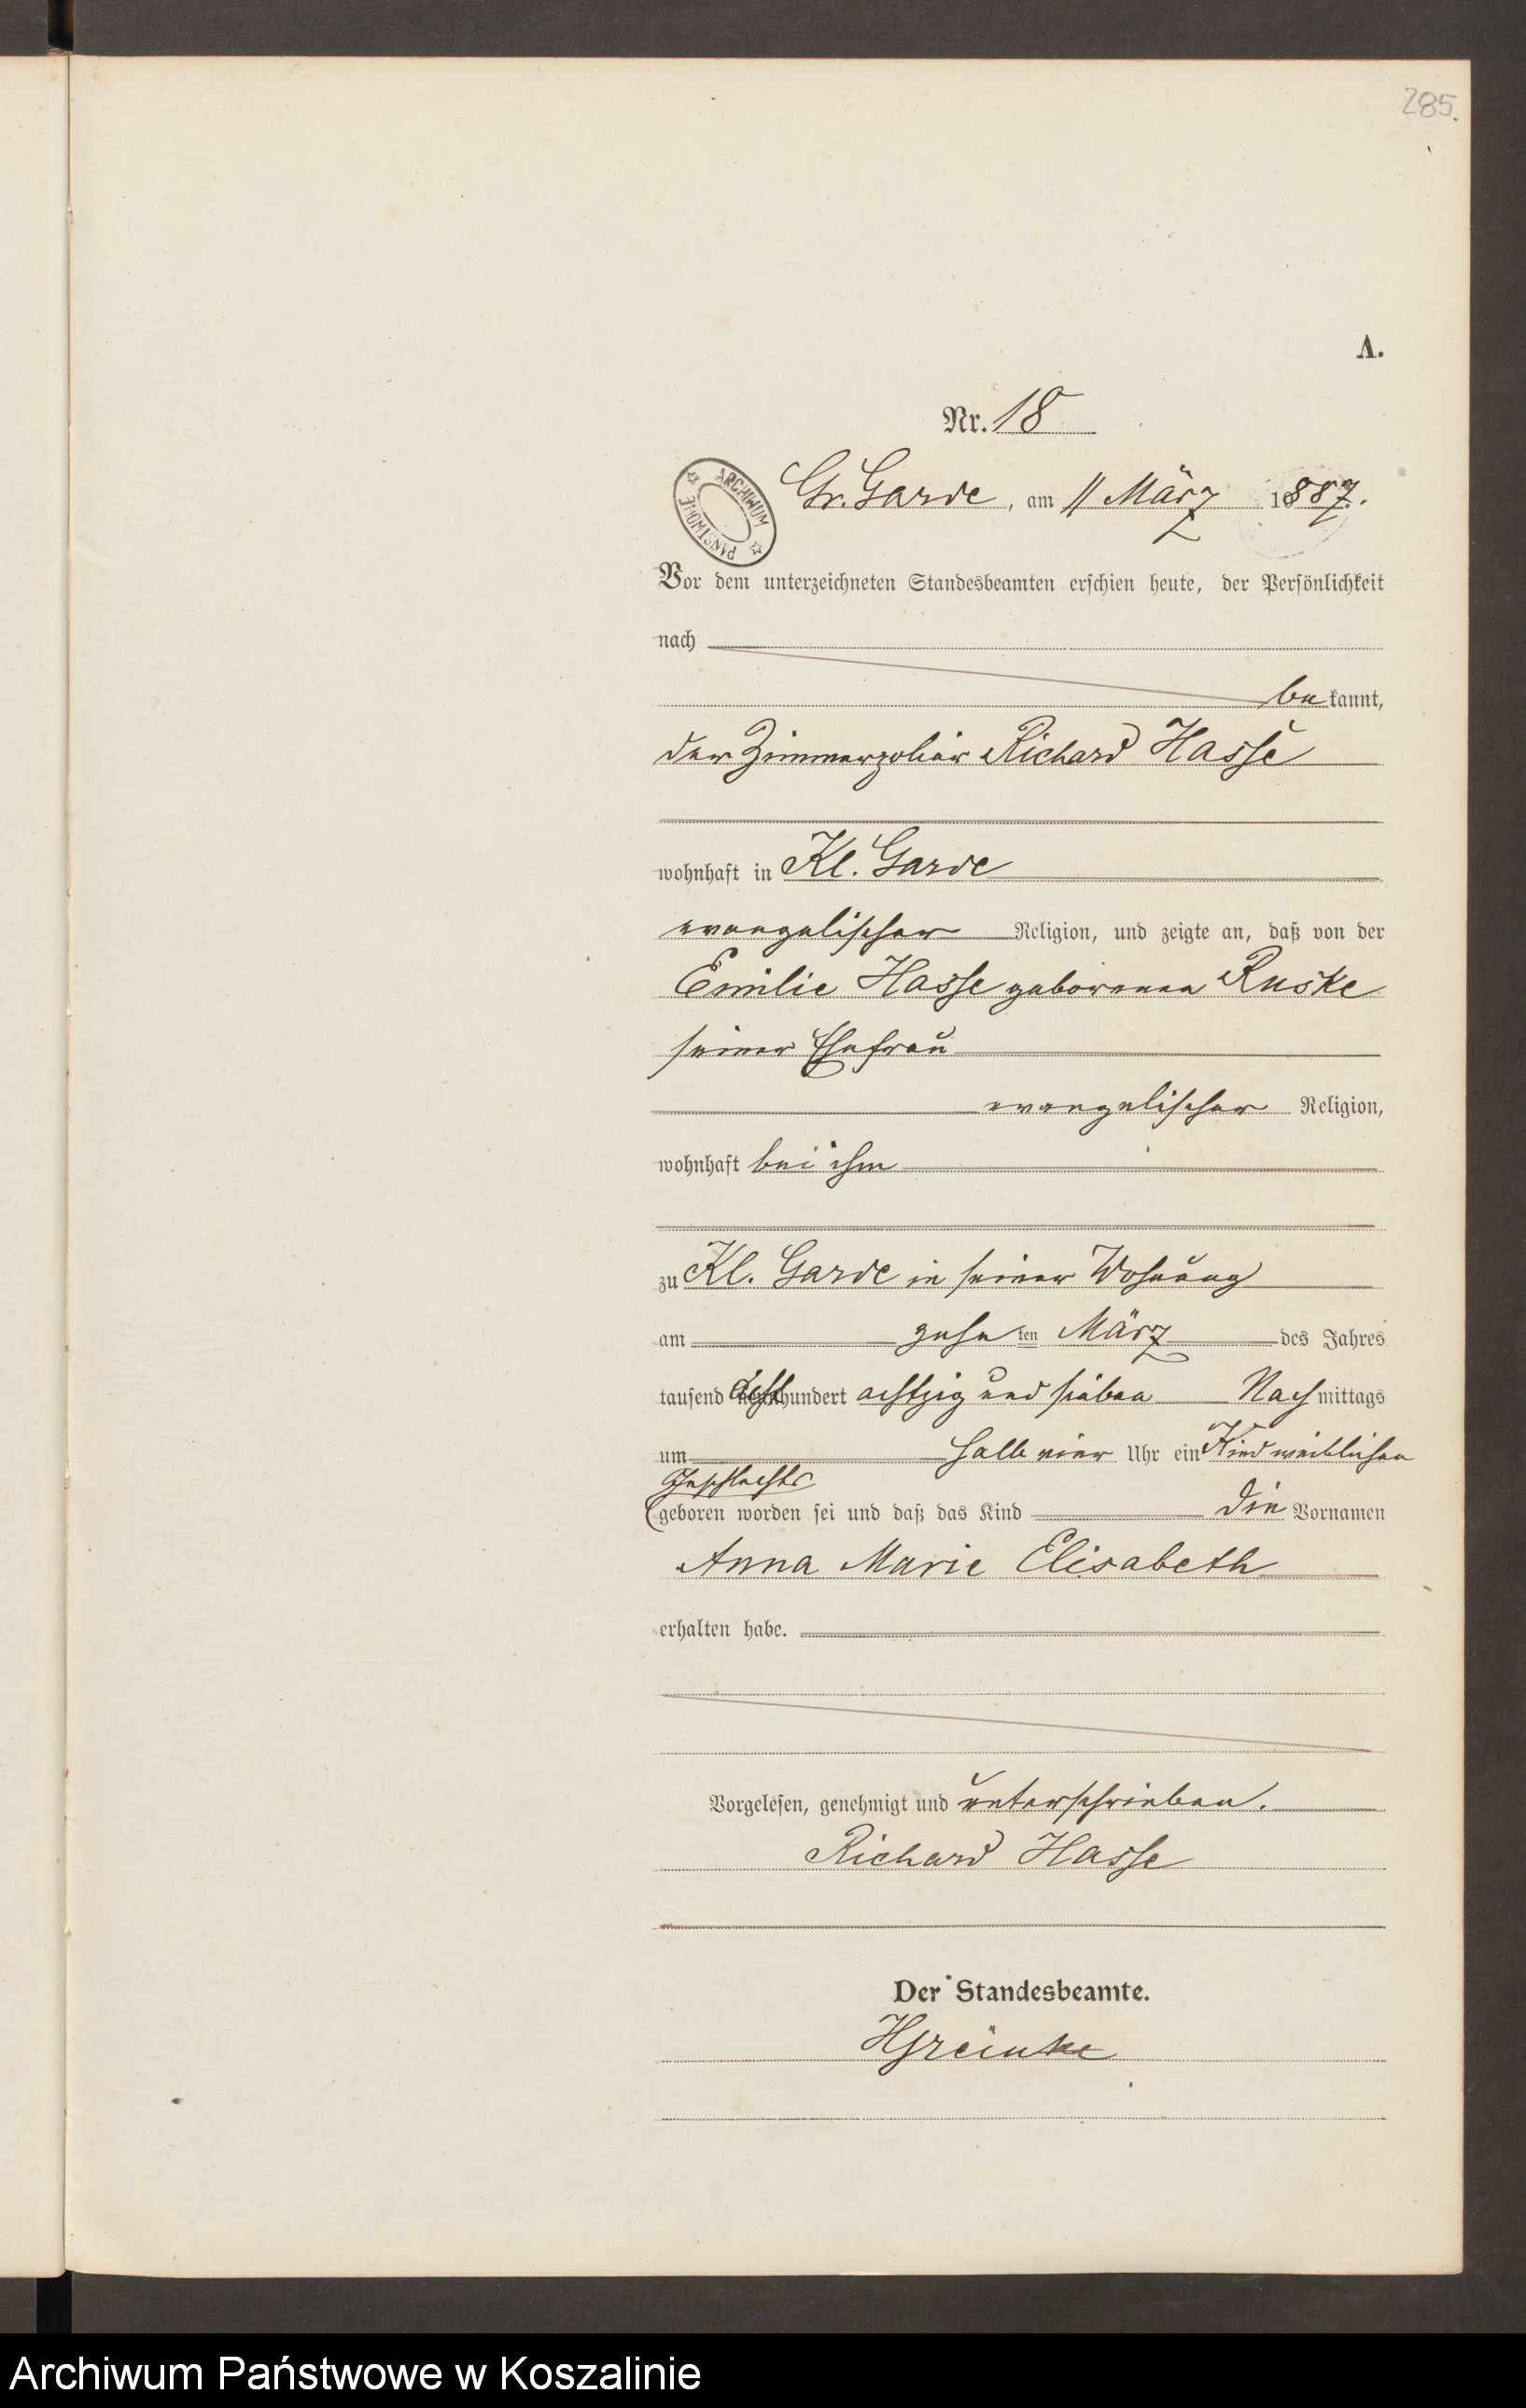 285.
A.
Nr. 18
ARCHIWUM PAŃSTWOWE
Gr. Garde, am 11 März 1887.
Vor dem unterzeichneten Standesbeamten erschien heute, der Persönlichkeit
nach
bekannt,
der Zimmerpolier Richard Hasse
wohnhaft in Kl. Garde
evangelischer Religion, und zeigte an, daß von der
Emilie Hasse geborenen Ruske
seiner Ehefrau
evangelischer Religion,
wohnhaft bei ihm
zu Kl. Garde in seiner Wohnung
am zehn ten März des Jahres
tausend acht hundert achtzig und sieben Nachmittags
um halb vier Uhr ein Kind weiblichen
Geschlechts
geboren worden sei und daß das Kind die Vornamen
Anna Marie Elisabeth
erhalten habe.
Vorgelesen, genehmigt und unterschrieben.
Richard Hasse
Der Standesbeamte.
Archiwum Państwowe w Koszalinie